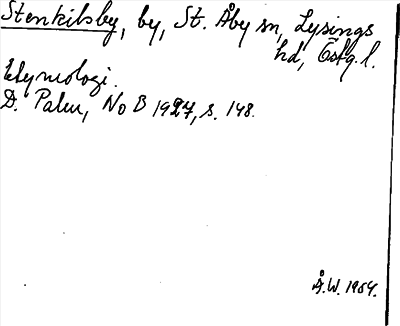 Stenkilsby, by, St. Åby sn, Lysings
hd, Östg.l.
Etymologi.
D. Palm, NoB 1927, s. 148.
Å.W. 1954.